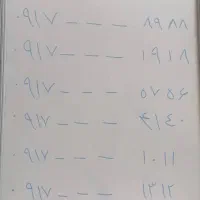 ۰۹۱۷ _ _ _ ۸۹۸۸
۰۹۱۷ _ _ _ ۱۹۱۸
۰۹۱۷ _ _ _ ۵۷۵۶
۰۹۱۷ _ _ _
۰۹۱۷ _ _ _ ۱۰۱۱
۰۹۱۷ _ _ _ ۱۳۱۲